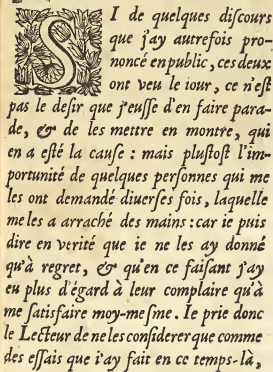 SI de quelques diſcours
que j'ay autrefois pro-
noncé en public, ces deux
ont veu le iour, ce n'eſt
pas le deſir que j'euſſe d'en faire para-
de, & de les mettre en montre, qui
en a eſté la cauſe : mais pluſtoſt l'im-
portunité de quelques perſonnes qui me
les ont demandé diuerſes fois, laquelle
me les a arraché des mains : car ie puis
dire en verité que ie ne les ay donné
qu'à regret, & qu'en ce faiſant j'ay
eu plus d'égard à leur complaire qu'à
me ſatisfaire moy-meſme. Ie prie donc
le Lecteur de ne les conſiderer que comme
des eſſais que i'ay fait en ce temps-là,